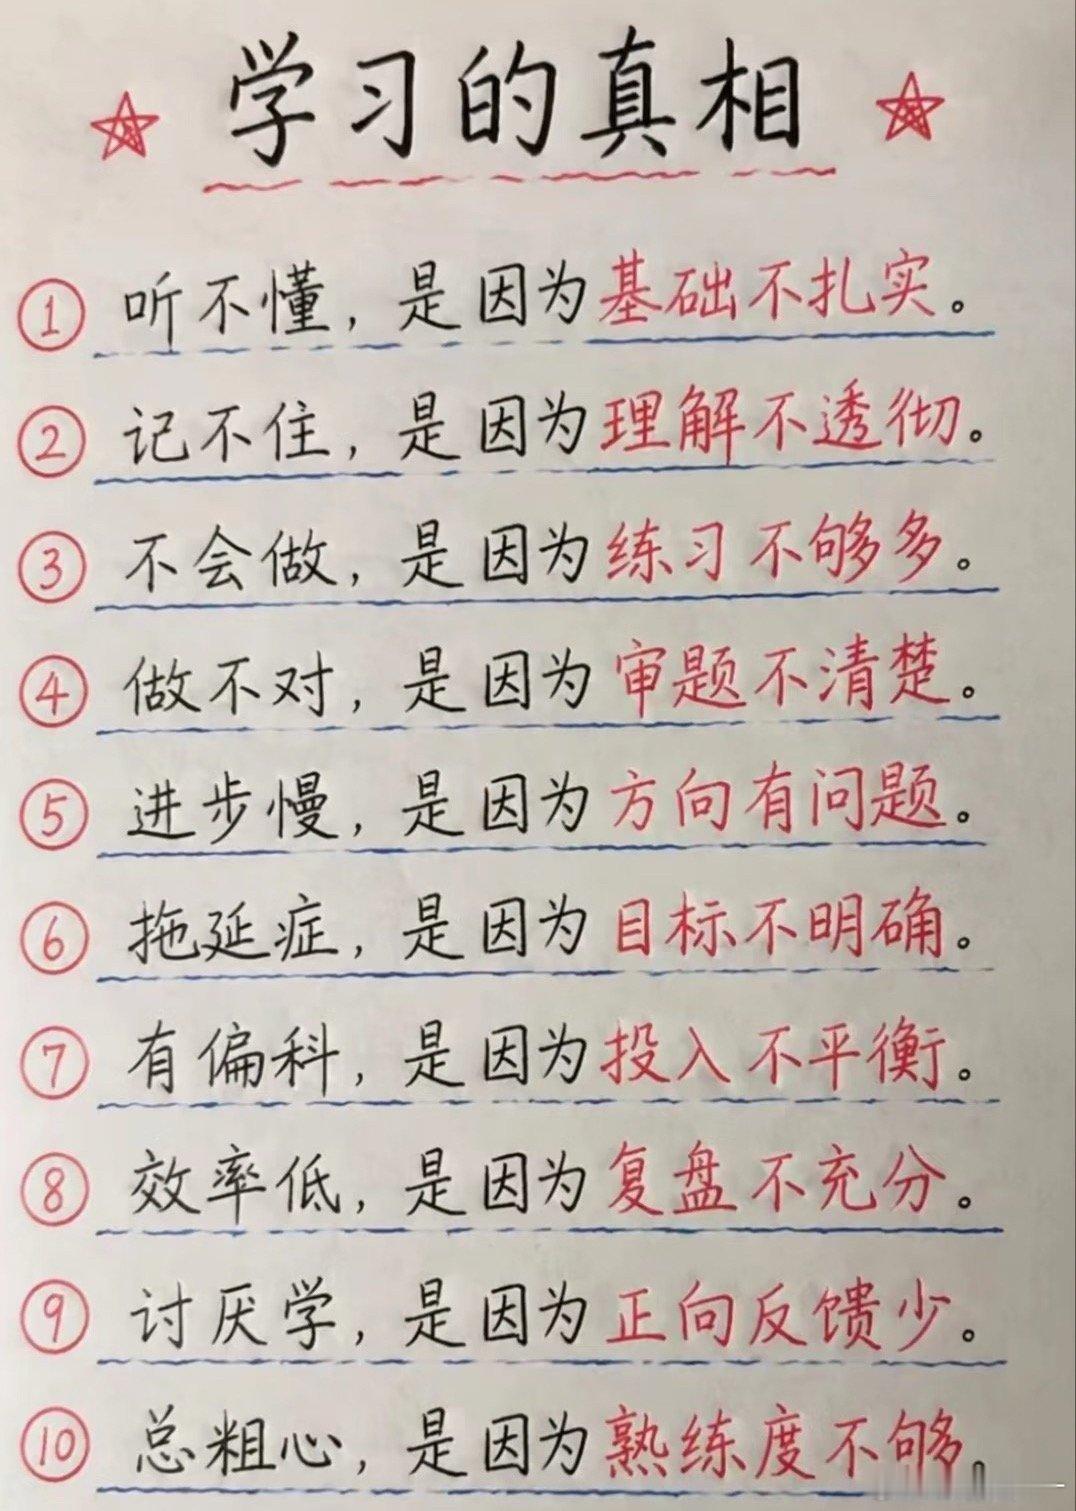 学习的真相
① 听不懂，是因为基础不扎实。
② 记不住，是因为理解不透彻。
③ 不会做，是因为练习不够多。
④ 做不对，是因为审题不清楚。
⑤ 进步慢，是因为方向有问题。
⑥ 拖延症，是因为目标不明确。
⑦ 有偏科，是因为投入不平衡。
⑧ 效率低，是因为复盘不充分。
⑨ 讨厌学，是因为正向反馈少。
⑩ 总粗心，是因为熟练度不够。